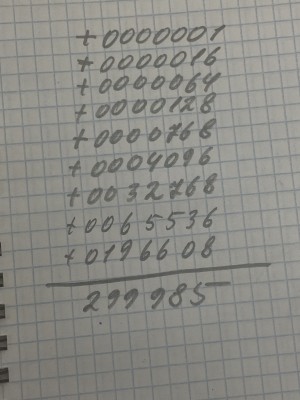 +0000001
+0000016
+0000064
+0000128
+0000768
+0004096
+0032768
+0065536
+0196608
299985